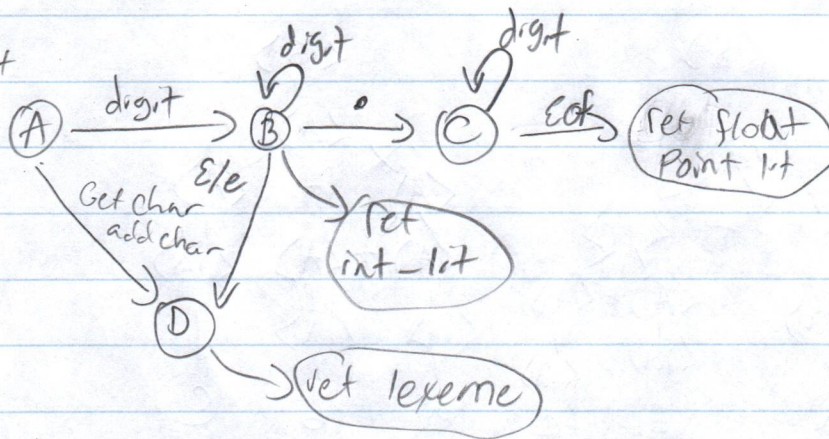 digit
digit
t
digit
A
B
.
C
EOF
ret float
point lit
E/e
Get char
add char
ret
int_lit
D
ret lexeme